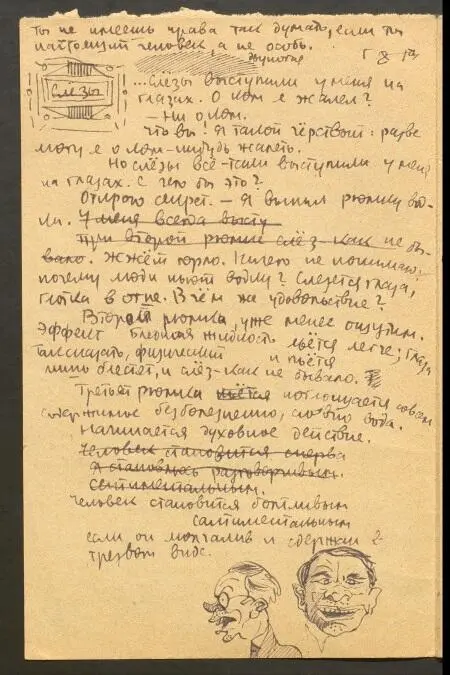 Ты не имеешь права так думать, если ты
настоящий человек, а не особь.
Слёзы
...Слёзы выступили у меня на
глазах. О ком я жалел?
– Ни о ком.
Что вы! Я такой чёрствый: разве
могу я о ком-нибудь жалеть.
Но слёзы всё-таки выступили у меня
на глазах. С чего бы это?
Открою секрет. – Я выпил рюмку вод-
ки. У меня всегда высту
При второй рюмке слёз – как не бы-
вало. Жжёт горло. Ничего не понимаю,
почему люди пьют водку? Слезятся глаза,
глотка в огне. В чём же удовольствие?
Второй рюмки уже менее ощутим.
Эффект бледная жидкость льётся легче; глаза
так сказать, физический и пьётся
лишь блестят, и слёз – как не бывало.
Третьей рюмки льётся поглощается совсем
содержимое безболезненно, словно вода.
Начинается духовное действие.
Человек становится сперва
Я становлюсь разговорчивым.
сентиментальным.
Человек становится болтливым
сантиментальным
если он молчалив и сдержан в
трезвом виде.